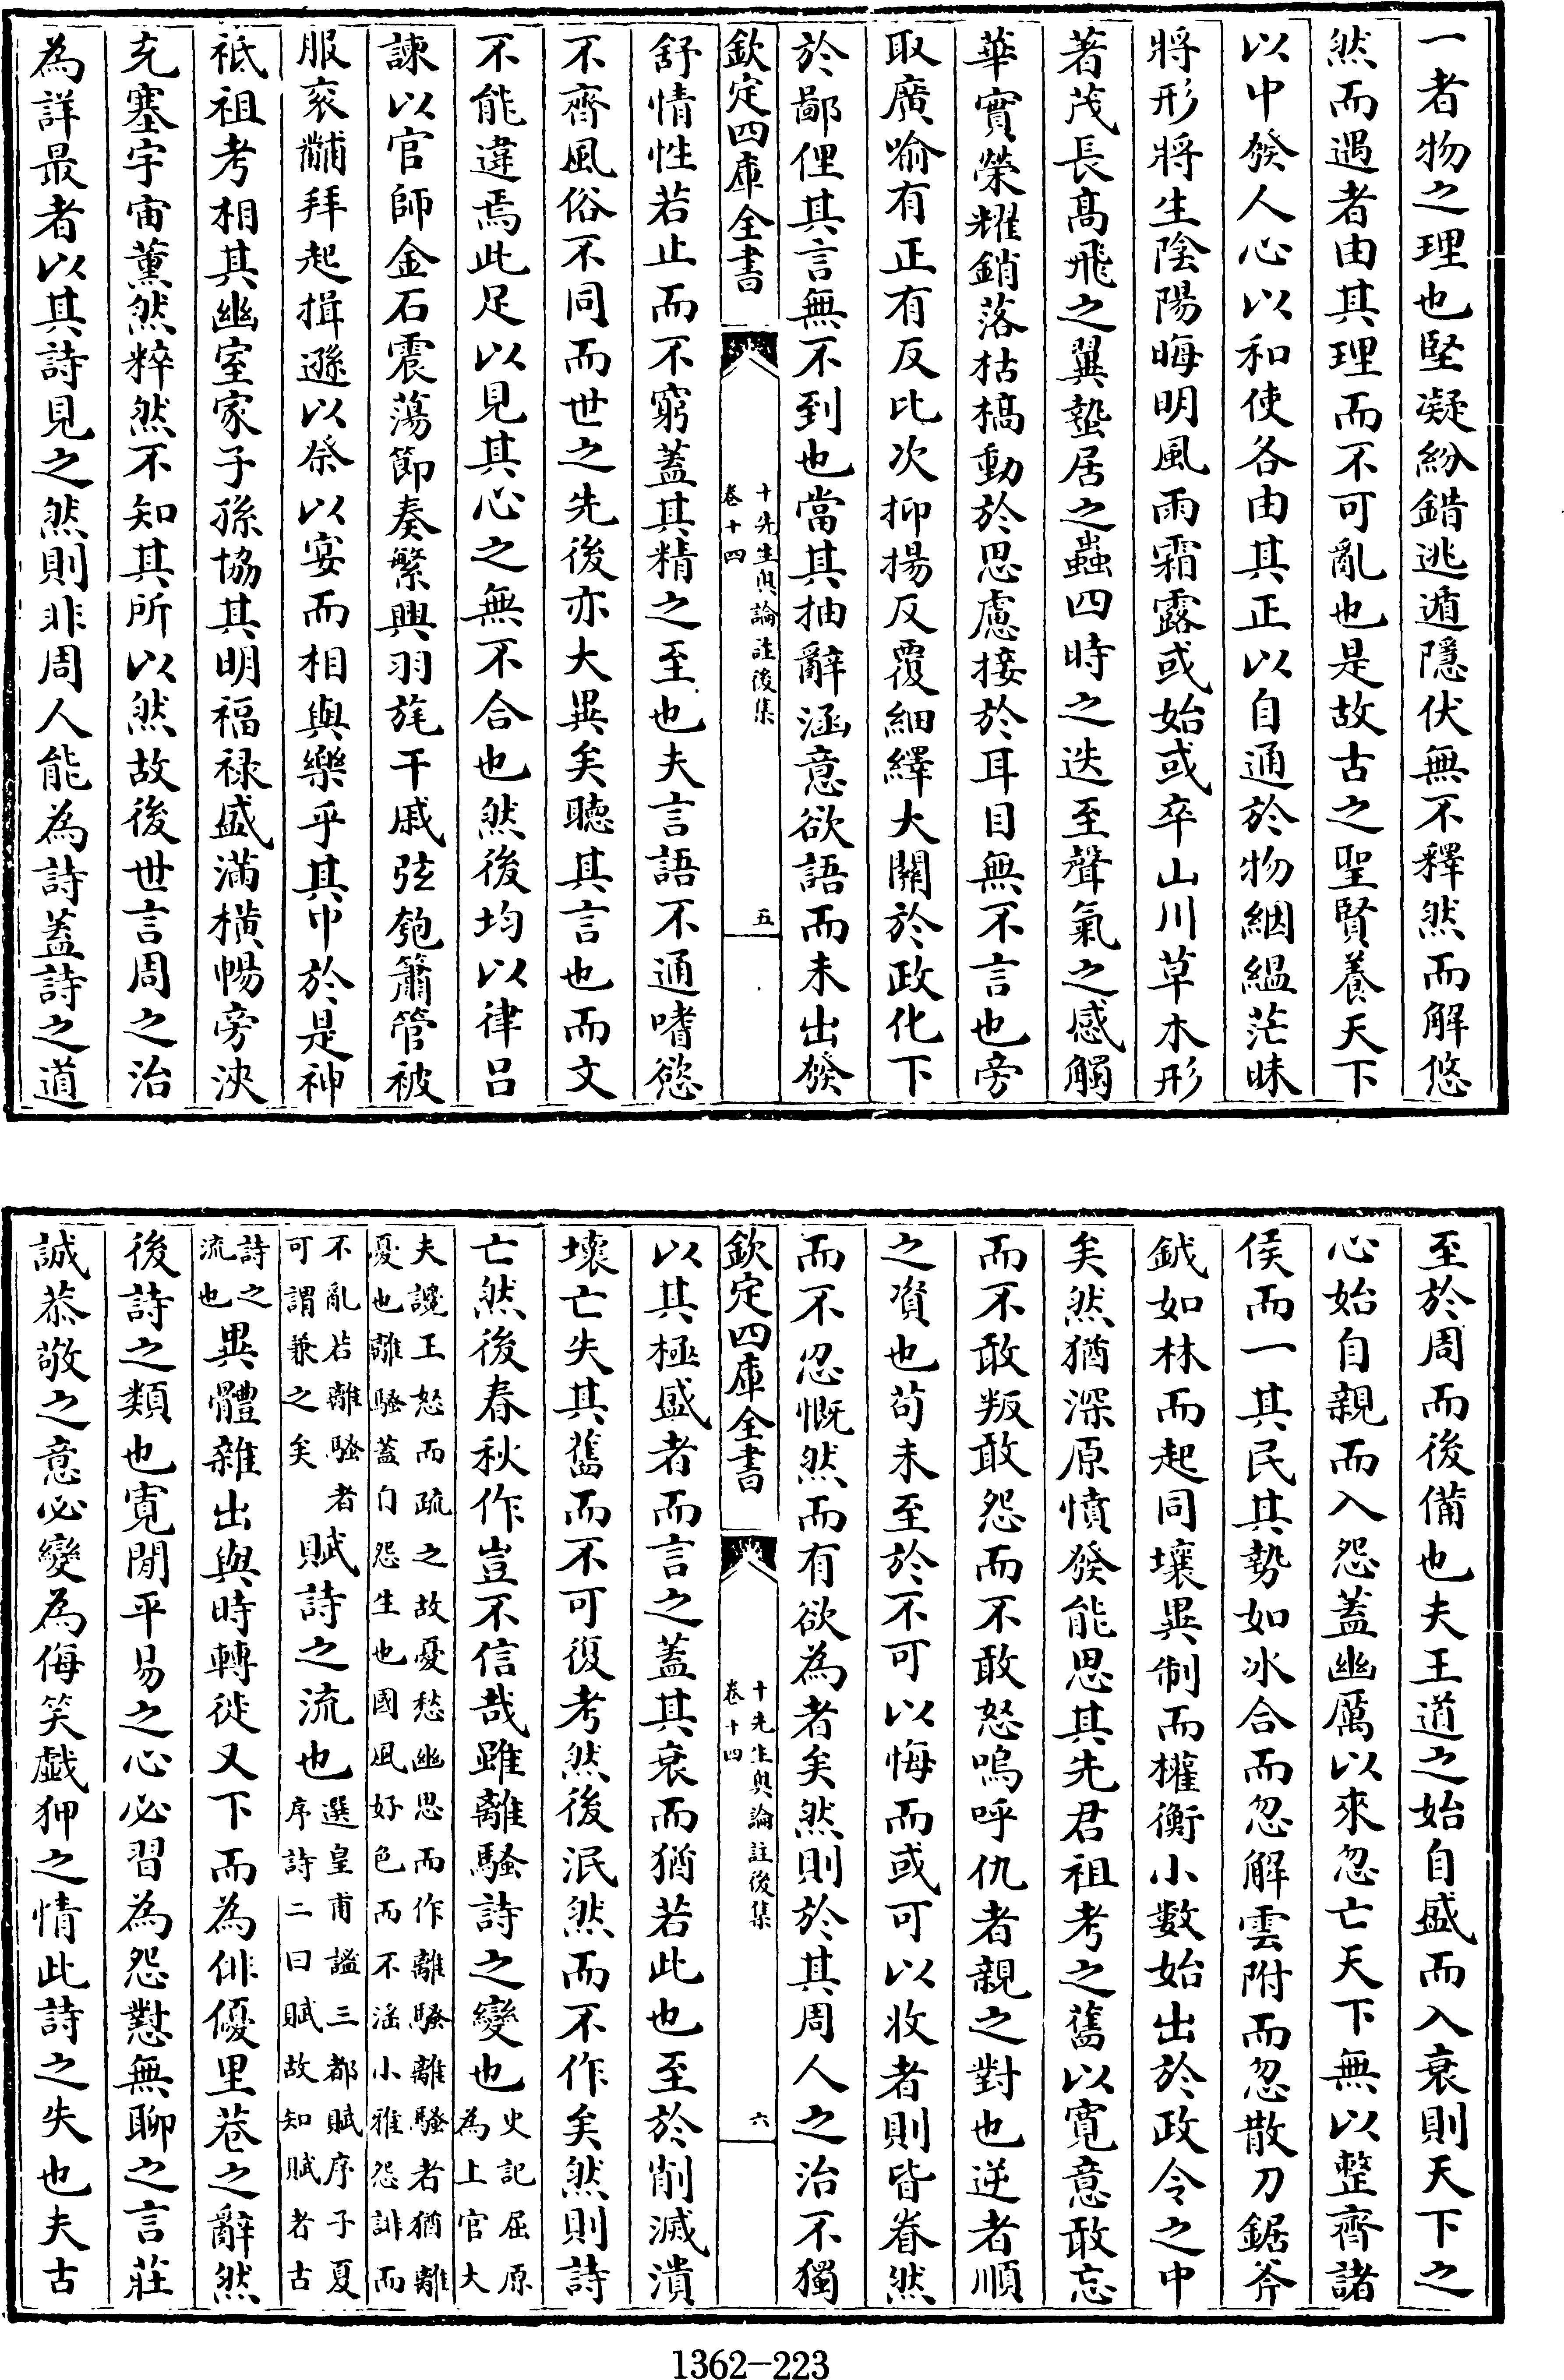 一者物之理也堅凝紛錯逃遁隱伏無不釋然而解悠
然而遇者由其理而不可亂也是故古之聖賢養天下
以中發人心以和使各由其正以自通於物絪縕茫昧
將形將生陰陽晦明風雨霜露或始或卒山川草木形
著茂長髙飛之翼蟄居之蟲四時之迭至聲氣之感觸
華實榮耀銷落枯槁動於思慮接於耳目無不言也旁
取廣喻有正有反比次抑揚反覆細繹大關於政化下
於鄙俚其言無不到也當其抽辭涵意欲語而未出發
欽定四庫全書
十先生奥論註後集
卷十四
五
舒情性若止而不窮蓋其精之至也夫言語不通嗜慾
不齊風俗不同而世之先後亦大異矣聽其言也而文
不能違焉此足以見其心之無不合也然後均以律吕
諫以官師金石震蕩節奏繁興羽旄干戚弦匏簫管被
服衮黼拜起揖遜以祭以宴而相與樂乎其中於是神
祗祖考相其幽室家子孫協其明福禄盛滿横暢旁浹
充塞宇宙薰然粹然不知其所以然故後世言周之治
為詳最者以其詩見之然則非周人能為詩蓋詩之道
至於周而後備也夫王道之始自盛而入衰則天下之
心始自親而入怨蓋幽厲以來忽亡天下無以整齊諸
侯而一其民其勢如冰合而忽解雲附而忽散刀鋸斧
鉞如林而起同壤異制而權衡小數始出於政令之中
矣然猶深原憤發能思其先君祖考之舊以寛意敢忘
而不敢叛敢怨而不敢怒嗚呼仇者親之對也逆者順
之資也苟未至於不可以悔而或可以收者則皆眷然
而不忍慨然而有欲為者矣然則於其周人之治不獨
欽定四庫全書
十先生奥論註後集
卷十四
六
以其極盛者而言之蓋其衰而猶若此也至於削滅潰
壊亡失其舊而不可復考然後泯然而不作矣然則詩
亡然後春秋作豈不信哉雖離騷詩之變也史記屈原為上官大
夫讒王怒而疏之故憂愁幽思而作離騷離騷者猶離憂也離騷蓋自怨生也國風好色而不淫小雅怨誹而
不亂若離騷者可謂兼之矣賦詩之流也選皇甫謐三都賦序子夏序詩二曰賦故知賦者古
詩之流也異體雜出與時轉徙又下而為俳優里巷之辭然
後詩之類也寛閒平易之心必習為怨懟無聊之言莊
誠恭敬之意必變為侮笑戲狎之情此詩之失也夫古
1362-223